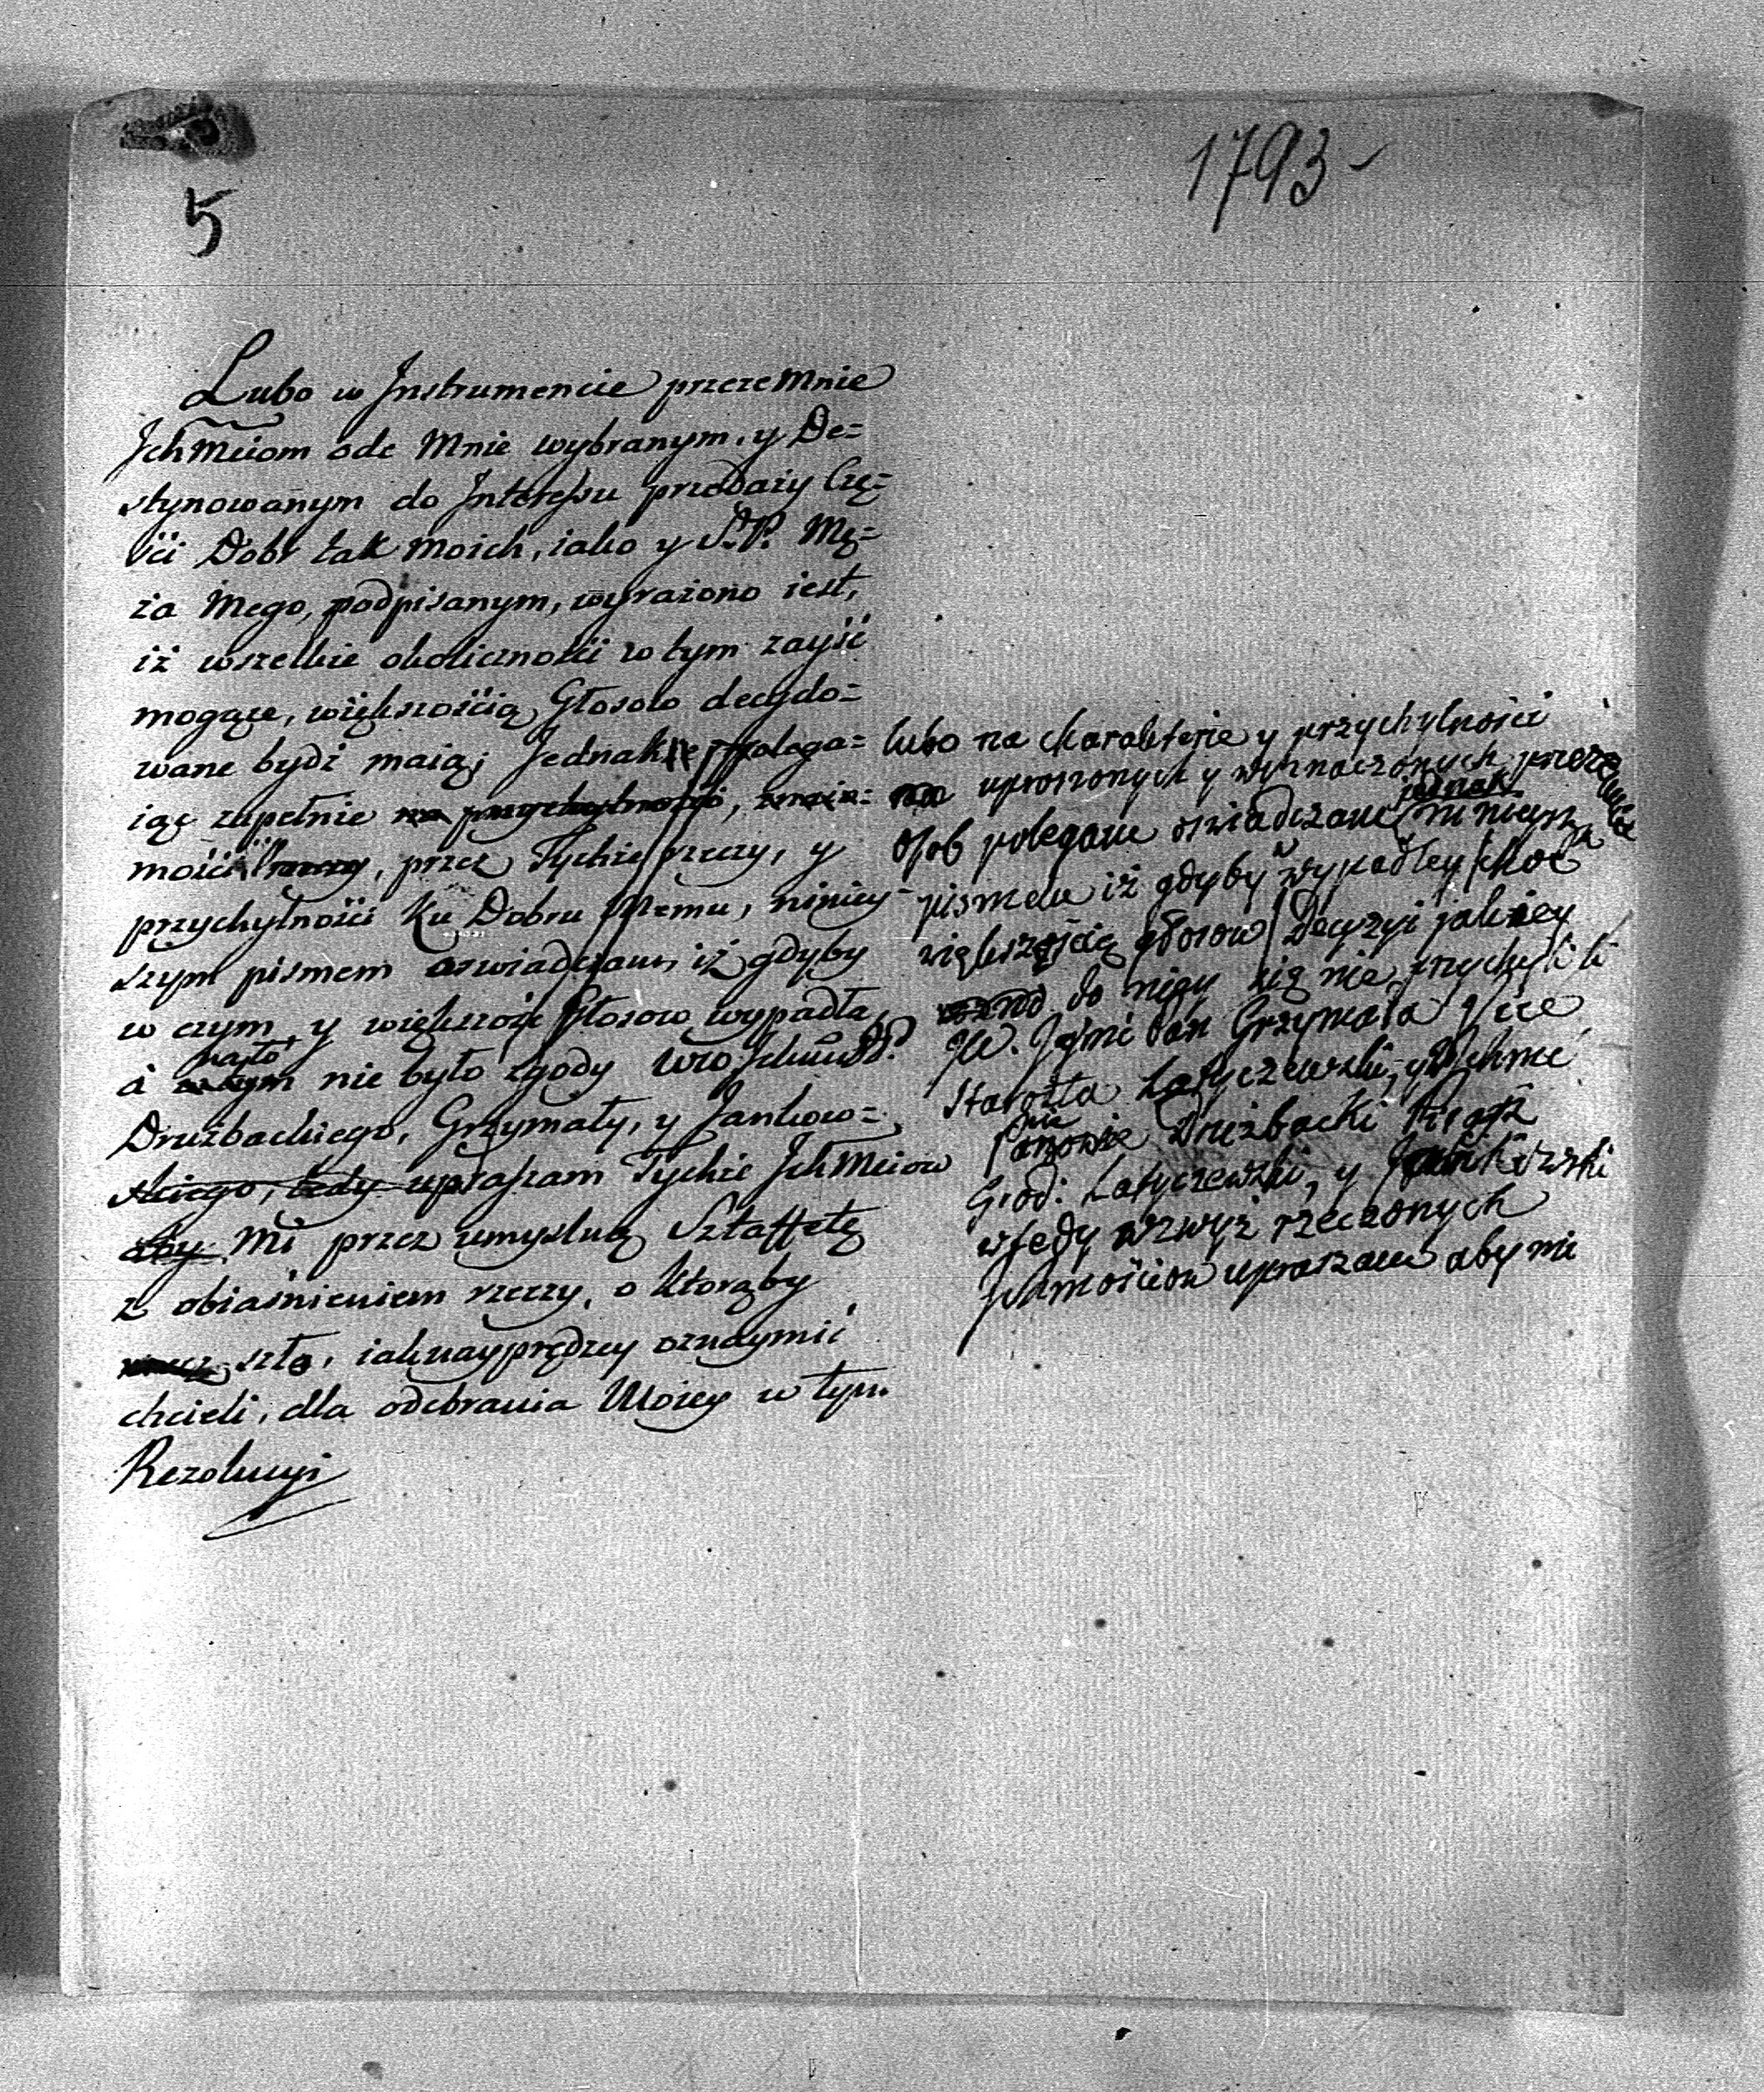 5
1793-
Lubo w Instrumencie przezemnie
Jchmciom ode Mnie wybranym, y De=
stynowanym do Interessu przedaży Czę=
ści Dobr tak Moich, iako y S.P. Mę=
ża Mego, podpisanym, wyrażono iest,
iż wszelkie okoliczności w tym zayść
mogące, większością Głosow decydo=
wane bydź maią; Jednakże polega=
iąc zupełnie na przychylności,
mości, przez Tychże rzeczy, y
przychylności Ku Dobru Memu, niniey=
szym pismem oswiadczam, iż gdyby
w czym y większość Głosow wypadła,
á na to nie było zgody WW Jchmść
Drużbackiego, Grzymały, y Jankow=
skiego, tedy upraszam Tychże JchMciow
aby Mi przez umyslną Sztaffetę
z obiaśnieniem rzeczy, o Ktorąby
szło, iaknayprędzey oznaymić
chcieli, dla odebrania Moiey w tym
Rezolucyi
lubo na charakterze y przychylności
uproszonych y wyznaczonych przezemnie
Osob polegam oswiadczam jednak ninieyszym
pismem iż gdyby w wypadłey choć
większością głosow Decyzyi jakiey
do niey się nie przychylili
JW. Jgmć Pan Grzymała
Starosta Latyczewski, y WJchmć
Panowie Drużbacki
Grod: Latyczewski, y
wtedy wzwyż rzeczonych
Jchmościow upraszam aby mi